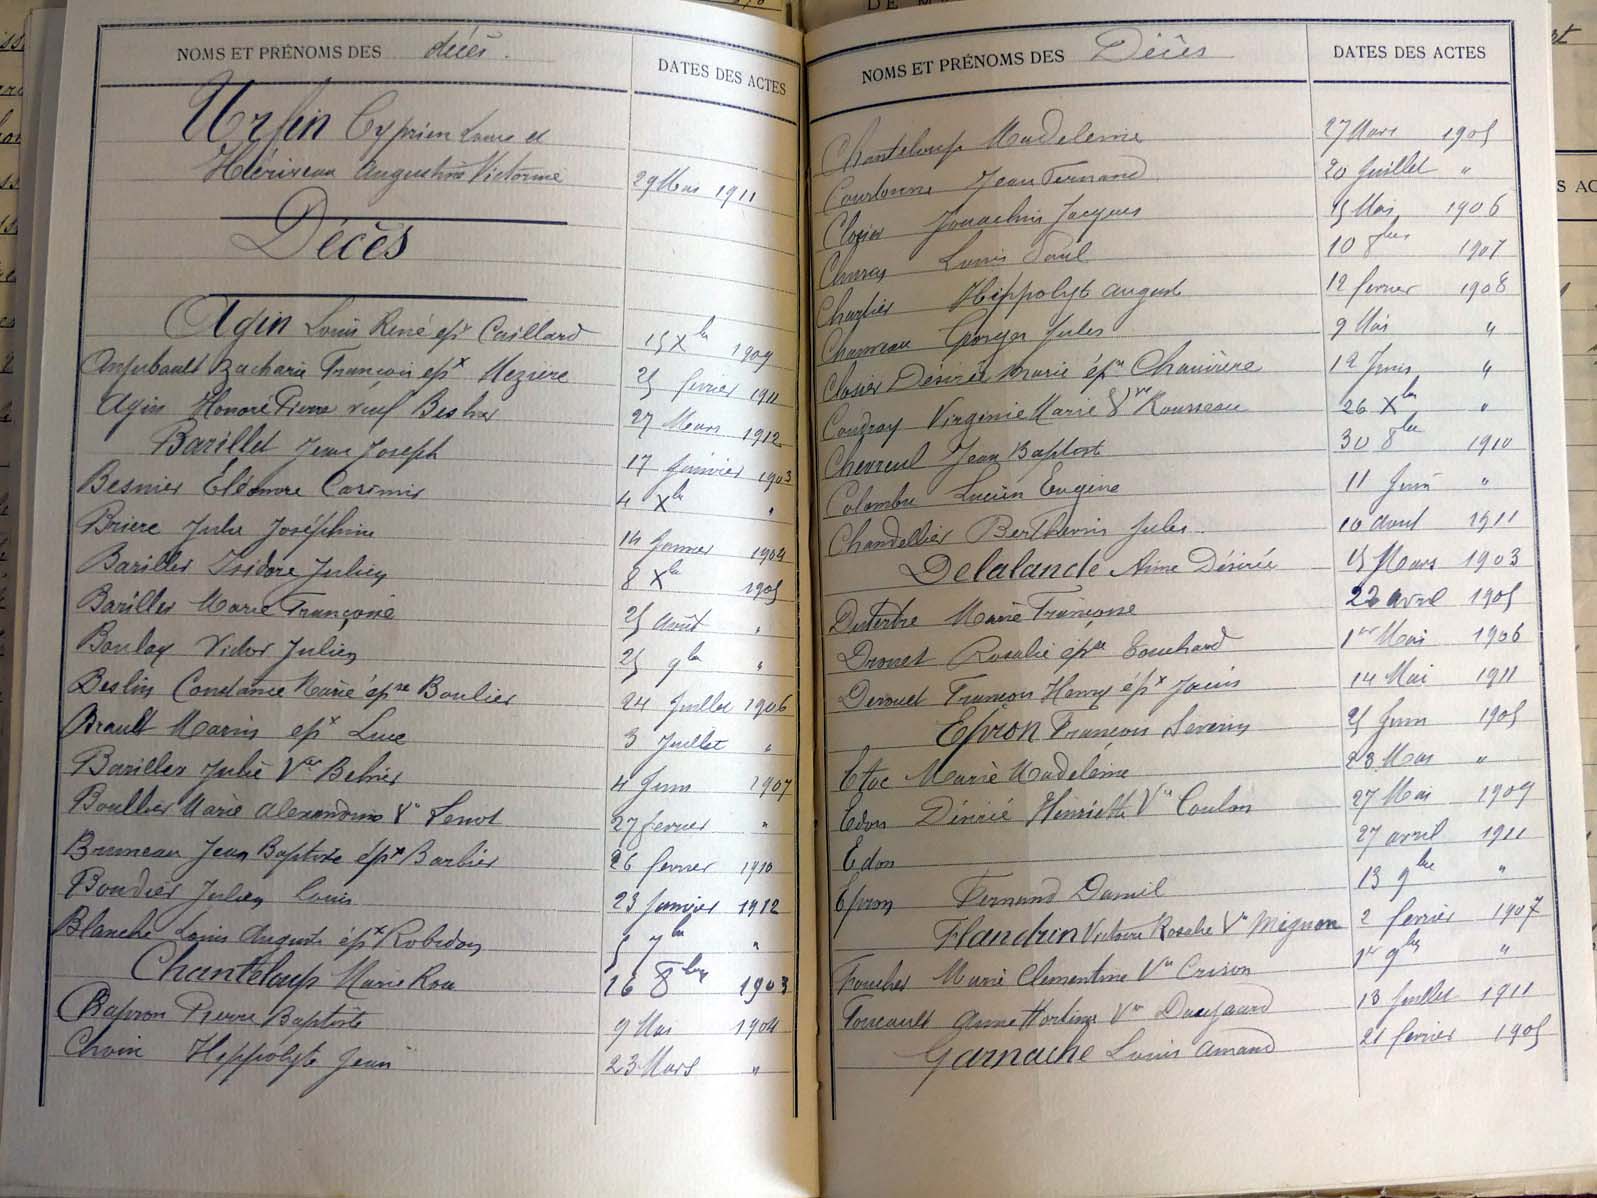 NOMS ET PRÉNOMS DES décès.
DATES DES ACTES
Urfin Cyprien Louis et
Hériveau Augustine Victorine 29 Mai 1911
Décès
Agin Louis René épx Caillard 15 Xbre 1909
Anjubault Zacharie François épx Mezière 25 février 1911
Agin Honoré Pierre veuf Besher 27 Mars 1912
Barillet Jean Joseph 17 Janvier 1903
Besnier Eléonore Casimir 4 Xbre "
Briere Julie Joséphine 14 Janvier 1904
Bariller Isidore Julien 8 Xbre 1905
Bariller Marie Françoise 25 Août "
Boulay Victor Julien 25 9bre "
Beslin Constance Marie épse Boulier 24 Juillet 1906
Brault Marin épx Luce 3 Juillet "
Bariller Julie Vve 4 Juin 1907
Boullier Marie Alexandrine Ve 27 fevrier "
Bruneau Jean Baptiste épx Barbier 26 fevrier 1910
Boudier Julien Louis 23 Janvier 1912
Blanche Louis Auguste épx Robidou 5 7bre "
Chanteloup Marie Rose 16 8bre 1903
Chapron Pierre Baptiste 9 Mai 1904
Choin Hippolyte Jean 23 Mars "
NOMS ET PRÉNOMS DES Décès
DATES DES ACTES
Chanteloup Madeleine 27 Mars 1905
Courtonne Jean Fernand 20 Juillet "
Closier Jouachin Jacques 15 Mai 1906
Louis Paul 10 8bre 1907
Chartier Hippolyte August 12 fevrier 1908
Chauveau Georges Jules 9 Mai "
Closier Désirée Marie épse Chauvière 12 Juin "
Coudray Virginie Marie Vve Rousseau 26 Xbre "
Chevreul Jean Baptiste 30 8bre 1910
Colombu Lucien Eugene 11 Juin "
Chandellier Berthevin Jules 10 Aout 1911
Delalande Aimé Désirée 15 Mars 1903
Dutertre Marie Françoise 22 avril 1905
Drouet Rosalie épse Touchard 1er Mai 1906
Derouet François Henry épx 14 Mai 1911
Epron François Severin 25 Juin 1905
Etoc Marie Madeleine 23 Mars "
Edon Désirée Henriette Ve Coulon 27 Mai 1909
Edon 27 avril 1911
Epron Fernand Daniel 13 9bre "
Flandrin Victoire Rosalie Ve Mignon 2 fevrier 1907
Foucher Marie Clementine Ve Crison 1er 9bre "
Foucault Anne Hortense Ve 13 Juillet 1911
Garnache Louis Amand 21 fevrier 1905